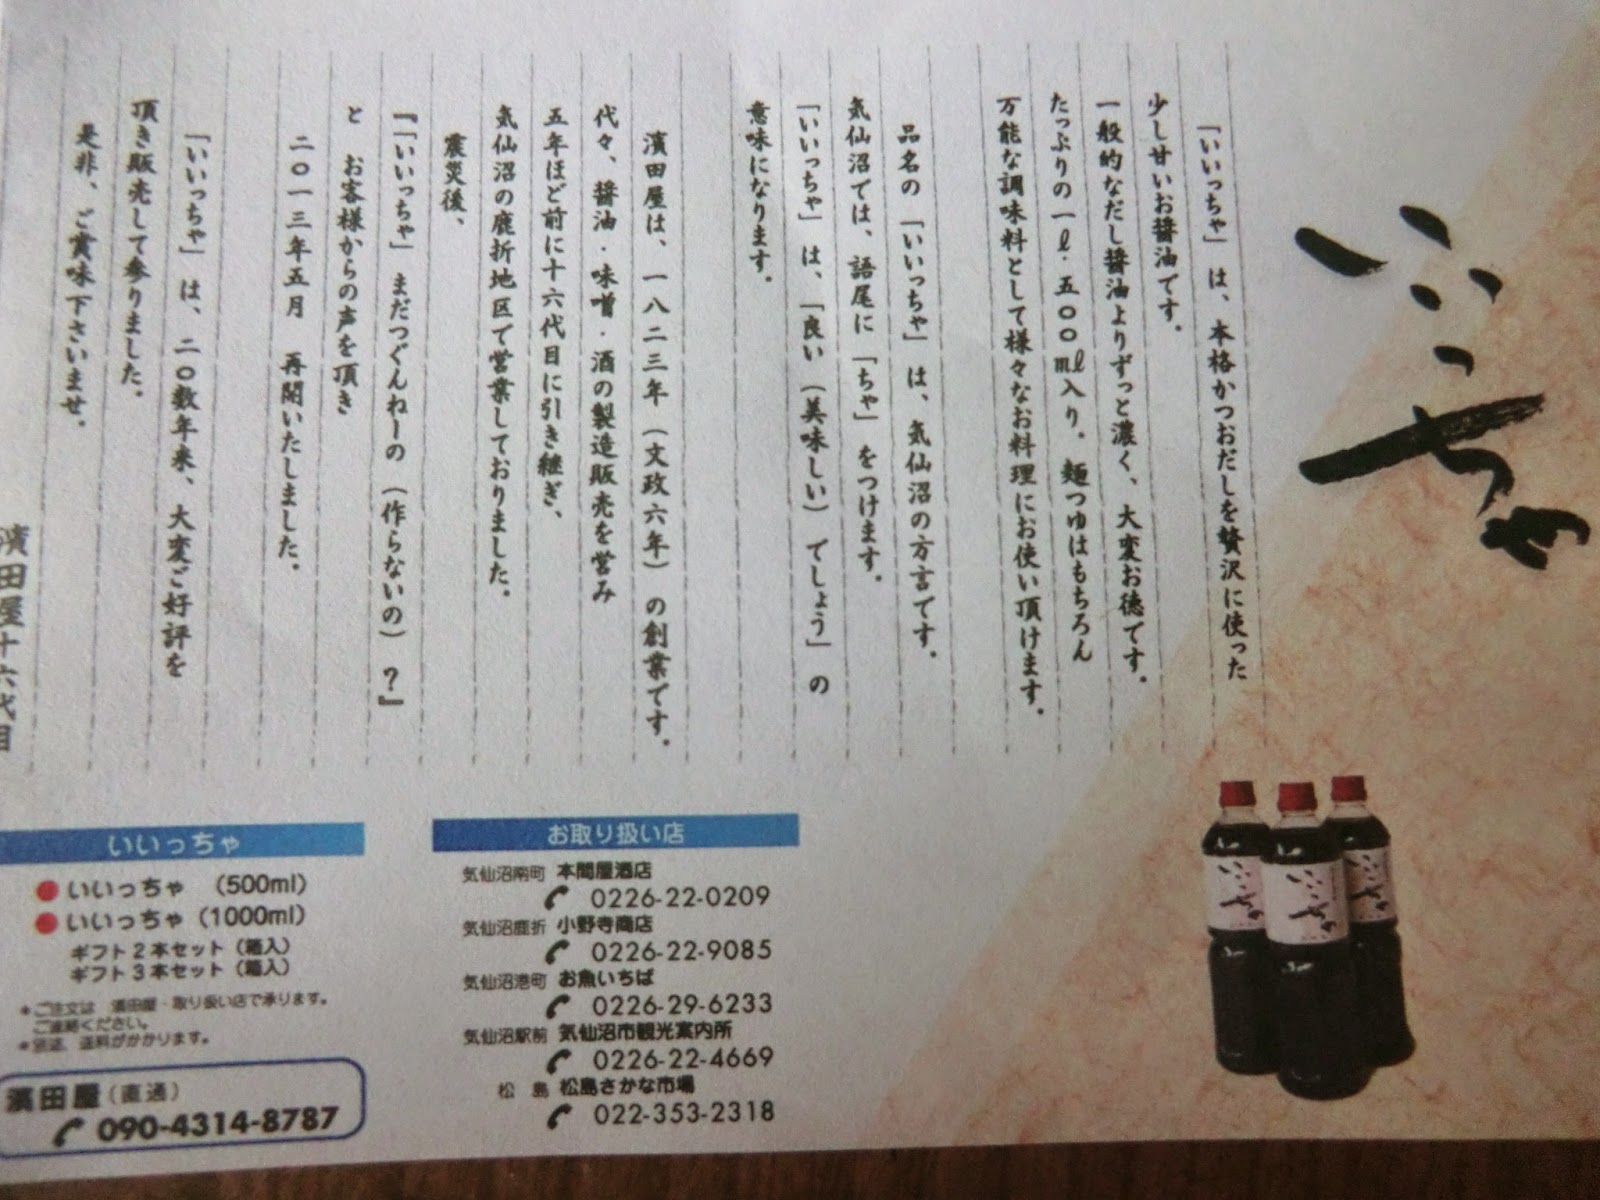 いいっちゃ
「いいっちゃ」は、本格かつおだしを贅沢に使った
少し甘いお醤油です。
一般的なだし醤油よりずっと濃く、大変お徳です。
たっぷりの一ℓ・五〇〇mℓ入り。麺つゆはもちろん
万能な調味料として様々なお料理にお使い頂けます。
品名の「いいっちゃ」は、気仙沼の方言です。
気仙沼では、語尾に「ちゃ」をつけます。
「いいっちゃ」は、「良い（美味しい）でしょう」の
意味になります。
濱田屋は、一八二三年（文政六年）の創業です。
代々、醤油・味噌・酒の製造販売を営み
五年ほど前に十六代目に引き継ぎ、
気仙沼の鹿折地区で営業しておりました。
震災後、
『「いいっちゃ」まだつぐんねーの（作らないの）？』
と お客様からの声を頂き
二〇一三年五月 再開いたしました。
「いいっちゃ」は、二〇数年来、大変ご好評を
頂き販売して参りました。
是非、ご賞味下さいませ。
濱田屋十六代目
お取り扱い店
気仙沼南町 本間屋酒店
0226-22-0209
気仙沼鹿折 小野寺商店
0226-22-9085
気仙沼港町 お魚いちば
0226-29-6233
気仙沼駅前 気仙沼市観光案内所
0226-22-4669
松島 松島さかな市場
022-353-2318
いいっちゃ
いいっちゃ（500ml）
いいっちゃ（1000ml）
ギフト2本セット（箱入）
ギフト3本セット（箱入）
＊ご注文は 濱田屋・取り扱い店で承ります。
ご連絡ください。
＊別途、送料がかかります。
濱田屋（直通）
090-4314-8787
いいっちゃ
いいっちゃ
いいっちゃ